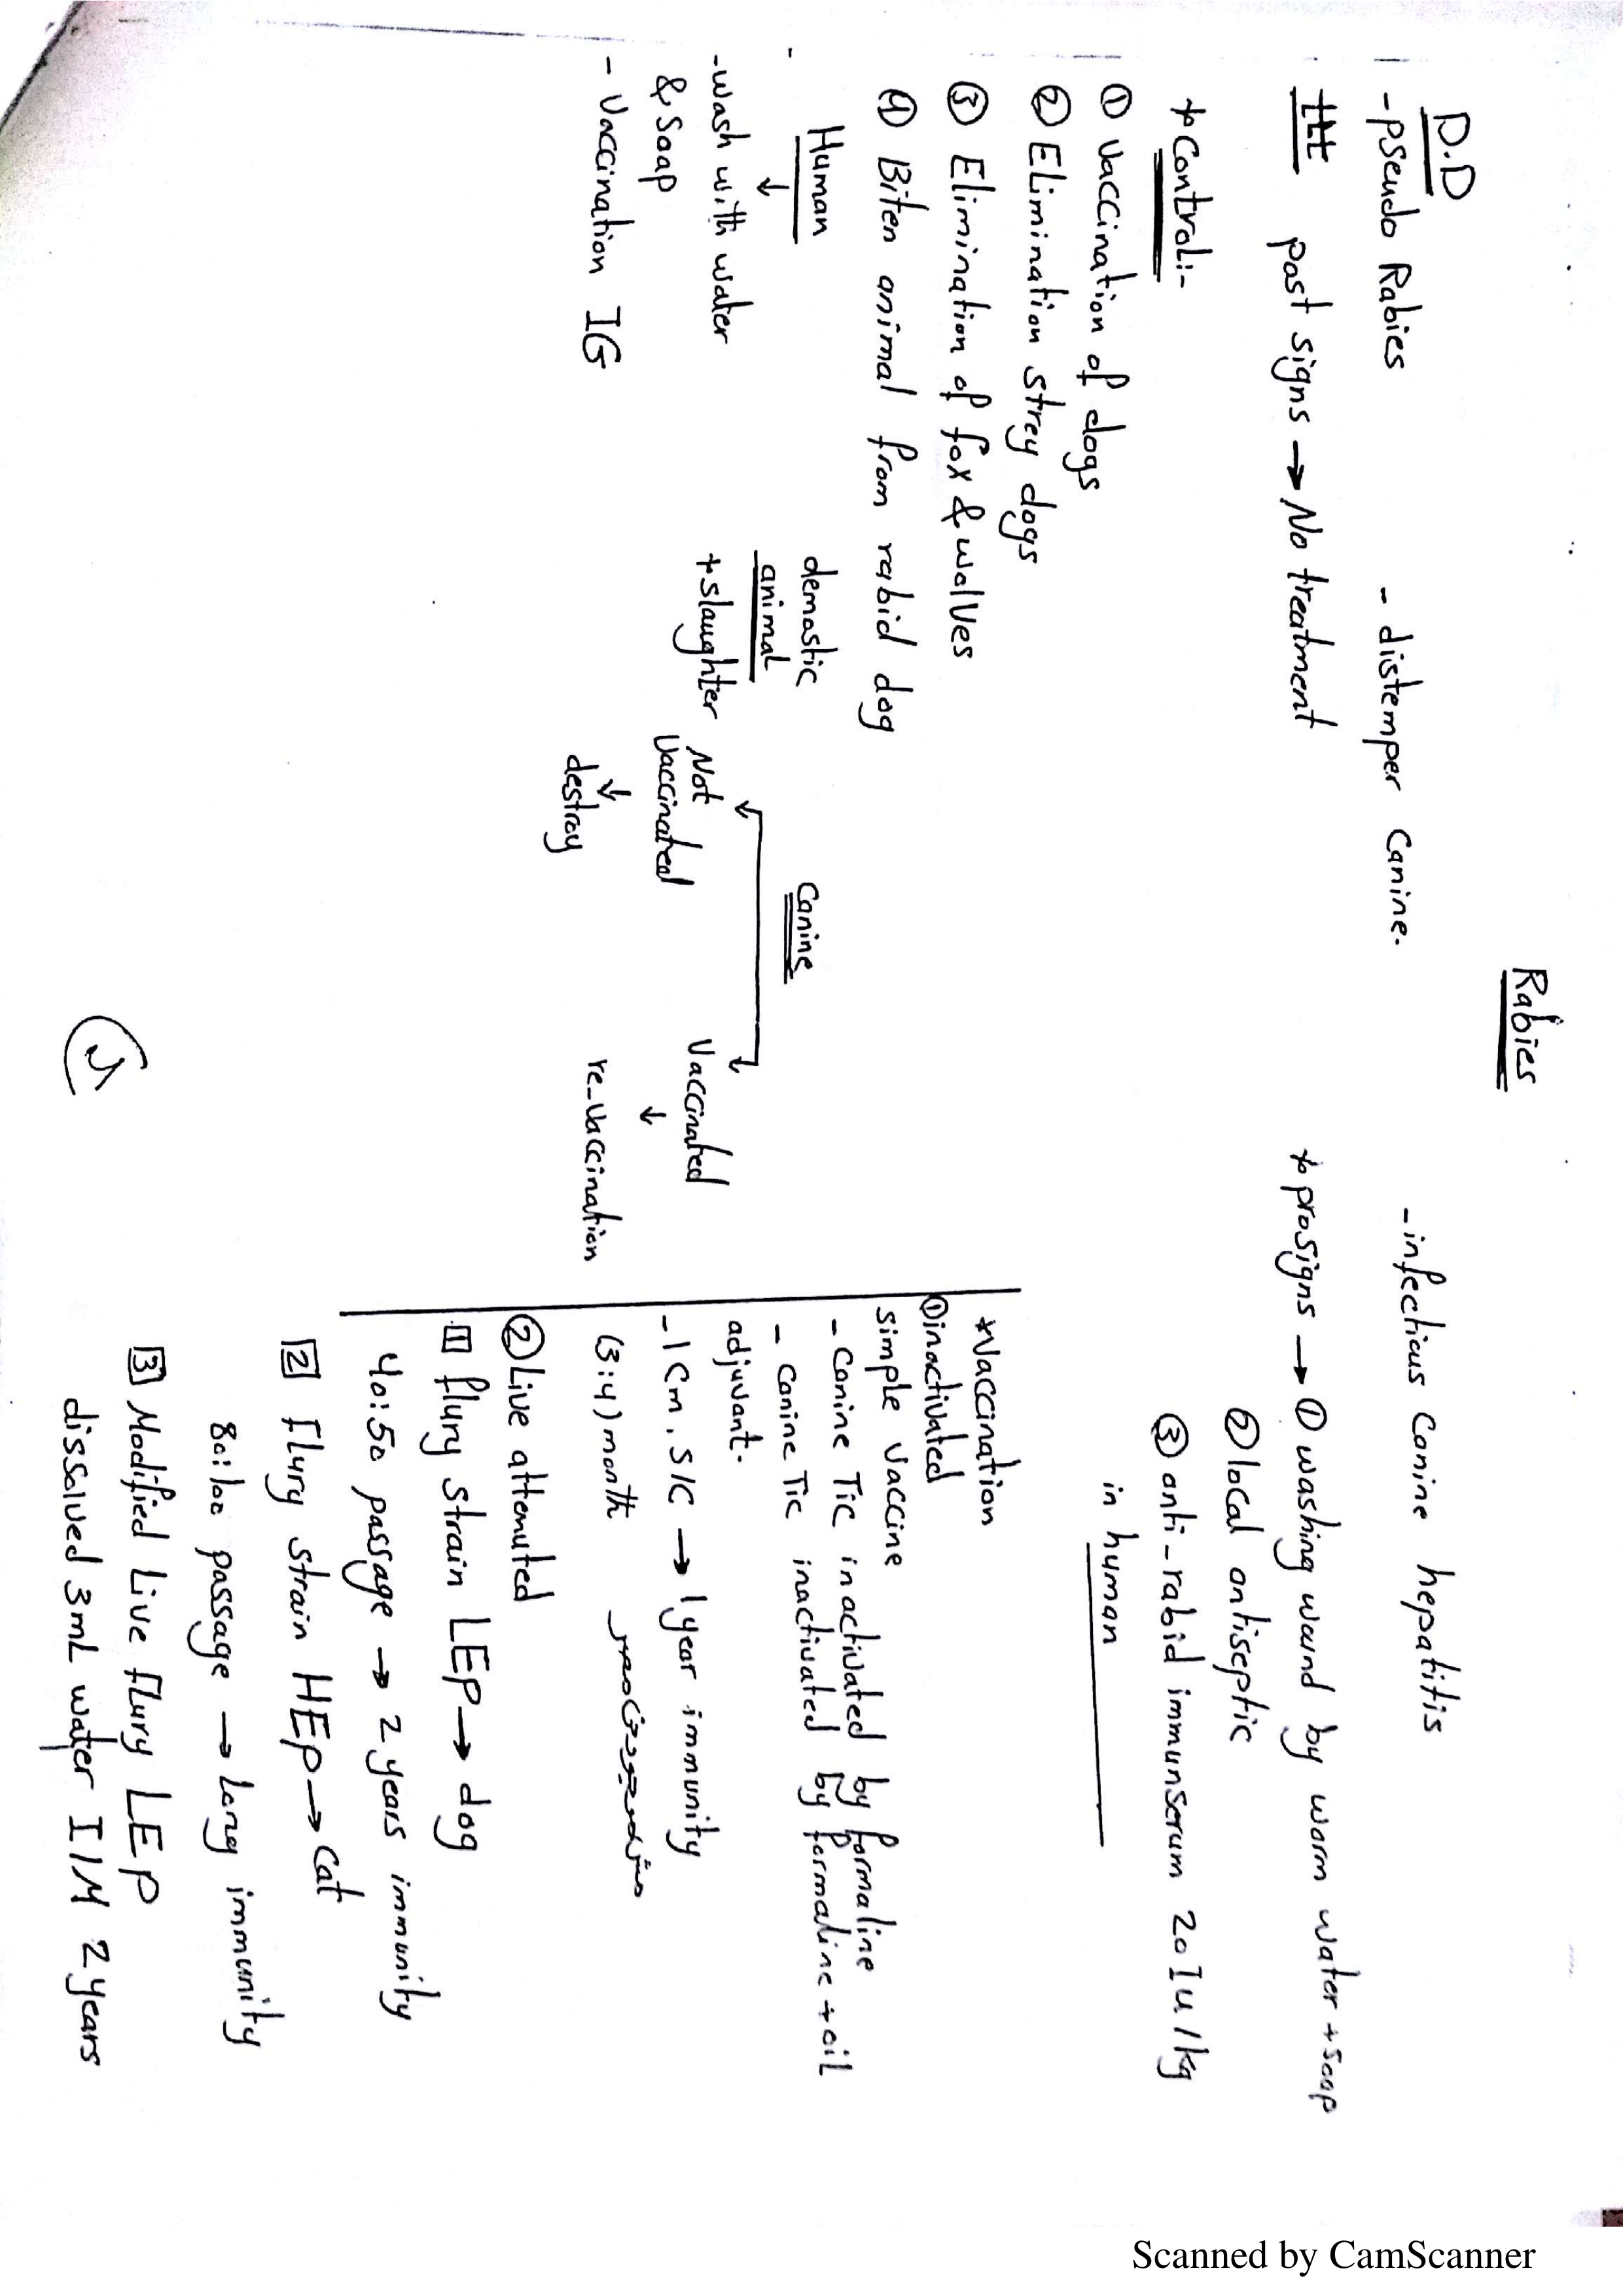 Rabies
D.D
-Pseudo Rabies - distemper canine. -infectious canine hepatitis
ttt post signs → No treatment * prosigns → ① washing wound by warm water + soap
② local antiseptic
③ anti-rabid immunserum 20 IU/kg
in human
* Control:-
① Vaccination of dogs
② Elimination strey dogs
③ Elimination of fox & wolves
④ Biten animal from rabid dog
Human
↓
-wash with water
& soap
- Vaccination IG
demostic
animal
+ slaughter
Canine
Not
Vaccinated
↓
destroy
Vaccinated
↓
re-vaccination
*Vaccination
① inactivated
simple vaccine
- Canine Tic inactivated by formaline
- Canine Tic inactivated by formaline + oil
adjuvant.
- 1 Cm. S/C → 1 year immunity
(3:4) month
② Live attenuted
1 flury strain LEP → dog
40:50 passage → 2 years immunity
2 flury strain HEP → cat
80:100 passage → long immunity
3 Modified Live flury LEP
dissolved 3mL water I/M 2 years
Scanned by CamScanner